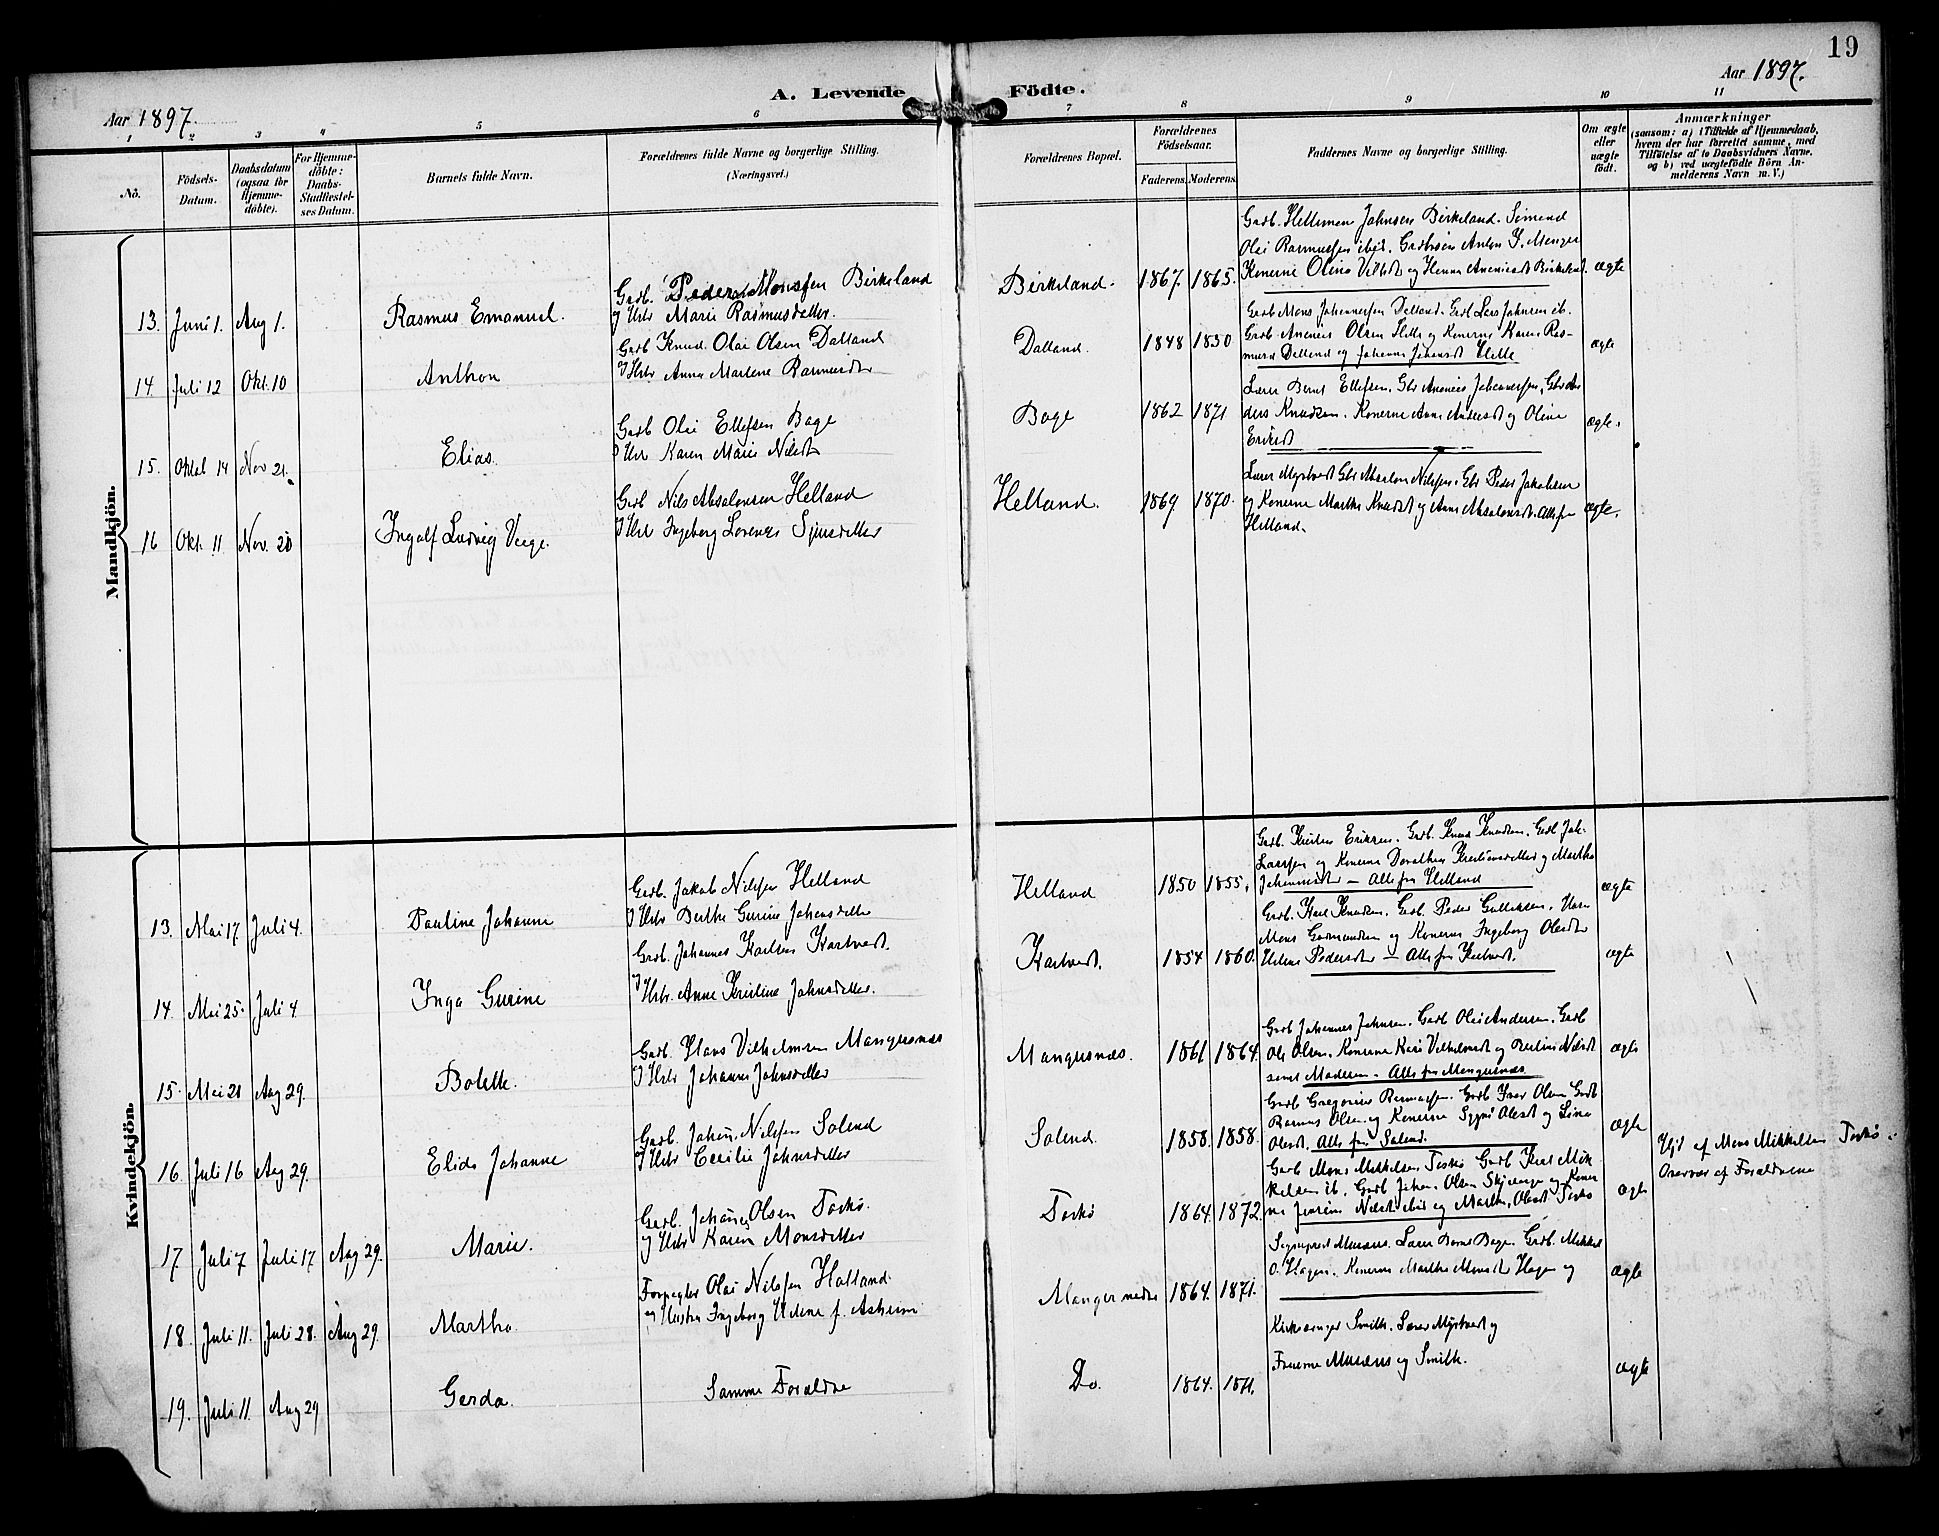 19
Aar 1897.
A. Levende Födte.
Aar 1897.
1 2 3 4 5 6 7 8 9 10 11
No.
Födsels-
Datum.
Daabsdatum
(ogsaa for
Hjemme-
döbte).
For Hjemme-
döbte:
Daabs-
Stadfæstel-
ses Datum.
Barnets fulde Navn.
Forældrenes fulde Navne og borgerlige Stilling.
(Næringsvei.)
Forældrenes Bopæl.
Forældrenes
Födselsaar.
Faderens. Moderens.
Faddernes Navne og borgerlige Stilling.
Om ægte
eller
uægte
födt.
Anmærkninger
(saasom: a) i Tilfælde af Hjemmedaab,
hvem der har forrettet samme, med
Tilföielse af to Daabsvidners Navne,
og b) ved uægtefödte Börn An-
melderens Navn m. V.)
Mandkjön.
13. Juni 1. Aug 1. Rasmus Emanuel.
Gadb. Peder Monssen Birkeland
og Hstr Marie Rasmusdatter.
Birkeland. 1867. 1865.
Gadb. Johnsen Birkeland.
Olai Rasmussen ibid. Anton
Konerne Olina og Birkeland.
ægte
14 Juli 12 Okt. 10 Anthon
Gadb Knud Olai Olsen Dalland
og Hstr Anna Martene Rasmusdt
Dalland. 1848 1850
Gadb Mons Johannessen Dalland. Gadb Lars Johnsen ib.
Gadb Ananias Olsen Helle og Konerne Karen Ras-
musd Dalland og Johanna Johansdt Helle
ægte
15. Oktob 14 Nov 21. Elias.
Gadb Olai Ellefsen Boge
og Hstr Karen Marie Nilsdt
Boge 1862 1871
Lærer Bernt Ellefsen, Gbr Ananias Johannessen, Gbr An-
ders Knudsen. Konerne Anna Andersdt og Oline
Eriksdt
ægte.
16 Okt. 11 Nov. 20 Ingolf Ludvig Veege.
Gadb Nils Absalonsen Helland
og Hstr Ingeborg Lorense Sjursdatter
Helland. 1869 1870.
Lærer Myrtvedt Gbr Absalon Nilssen, Gbr Peder Jakobsen
og Konerne Martha Knudsdt og Anna Absalonsdt. Alle fra
Helland.
ægte.
Kvindekjön.
13. Mai 17 Juli 4. Pauline Johanne
Gadb. Jakob Nilssen Helland
og Hstr Berthe Gurine Johnsdatter
Helland 1850 1855.
Gadb. Kristen Eriksen. Gadb. Knud Knudsen. Gadb Joh.
Larssen og Konerne Dorothea Kristiansdatter og Martha
Johannesdtr – Alle fra Helland
ægte
14. Mai 25. Juli 4 Inga Gurine
Gadb. Johannes Karlsen Kartvedt
og Hstr. Anne Kristine Johnsdatter.
Kartvedt. 1854 1860.
Gadb. Karl Knudsen. Gadb. Peder Gulliksen.
Mons Gudmundsen og Konerne Ingeborg Olesdtr
Helene Pedersdtr – Alle fra Kartvedt.
ægte
15. Mai 21 Aug 29. Bolette.
Gadb. Hans Vilhelmsen Mangersnæs
og Hstr Johanna Johnsdatter
Mangersnæs. 1861 1864.
Gadb Johannes Johnsen. Gadb Olai Andersen. Gadb
Ole Olsen. Konerne Kari Vilhelmsdt og Berlina Nilsdt
samt Moderen – Alle fra Mangersnæs
ægte
16. Juli 16 Aug 29. Elida Johanne
Gadb. Johan. Nilssen Solend
og Hstr Cecilie Johnsdatter
Solend. 1858. 1858.
Gadb Gregorius Rasmussen. Gadb Ivar Olsen Gadb
Rasmus Olsen og Konerne Sygni Olesdt og Lina
Olesdt. Alle fra Solend.
ægte
17 Juli 7 Juli 17 Aug 29. Marie.
Gadb. Johannes Olsen Toskø.
og Hstr Karen Monsdatter
Toskø 1864. 1872.
Gadb Mons Mikkelsen Toskø Gadb Karl Mik-
kelsen ib. Gadb Johan. Olsen Skjelanger og Koner-
ne Nilsdt ibid og Martha Olesdt Toskø
ægte
Hjd af Mons Mikkelsen Toskø i
Overvær af Forældrene
18. Juli 11. Juli 28. Aug 29. Martha.
Forpagter Olai Nilssen Halland.
og Hustru Ingeborg Helene f. Asheim
Manger nedre 1864. 1871.
Sogneprest Musæus. Lærer Bernt Boge. Gadb. Mikkel
O. Hagen. Konerne Martha Monsdt Hagen og
ægte
19. Juli 11. Aug 29 Gerda.
Samme Forældre
Do. 1864. 1871.
Kirkesanger Smith. Lærer Myrtvedt og
Fruerne Musæus og Smith.
ægte